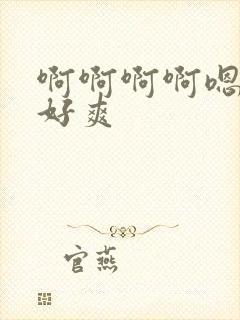 啊啊啊啊嗯
好爽
官燕